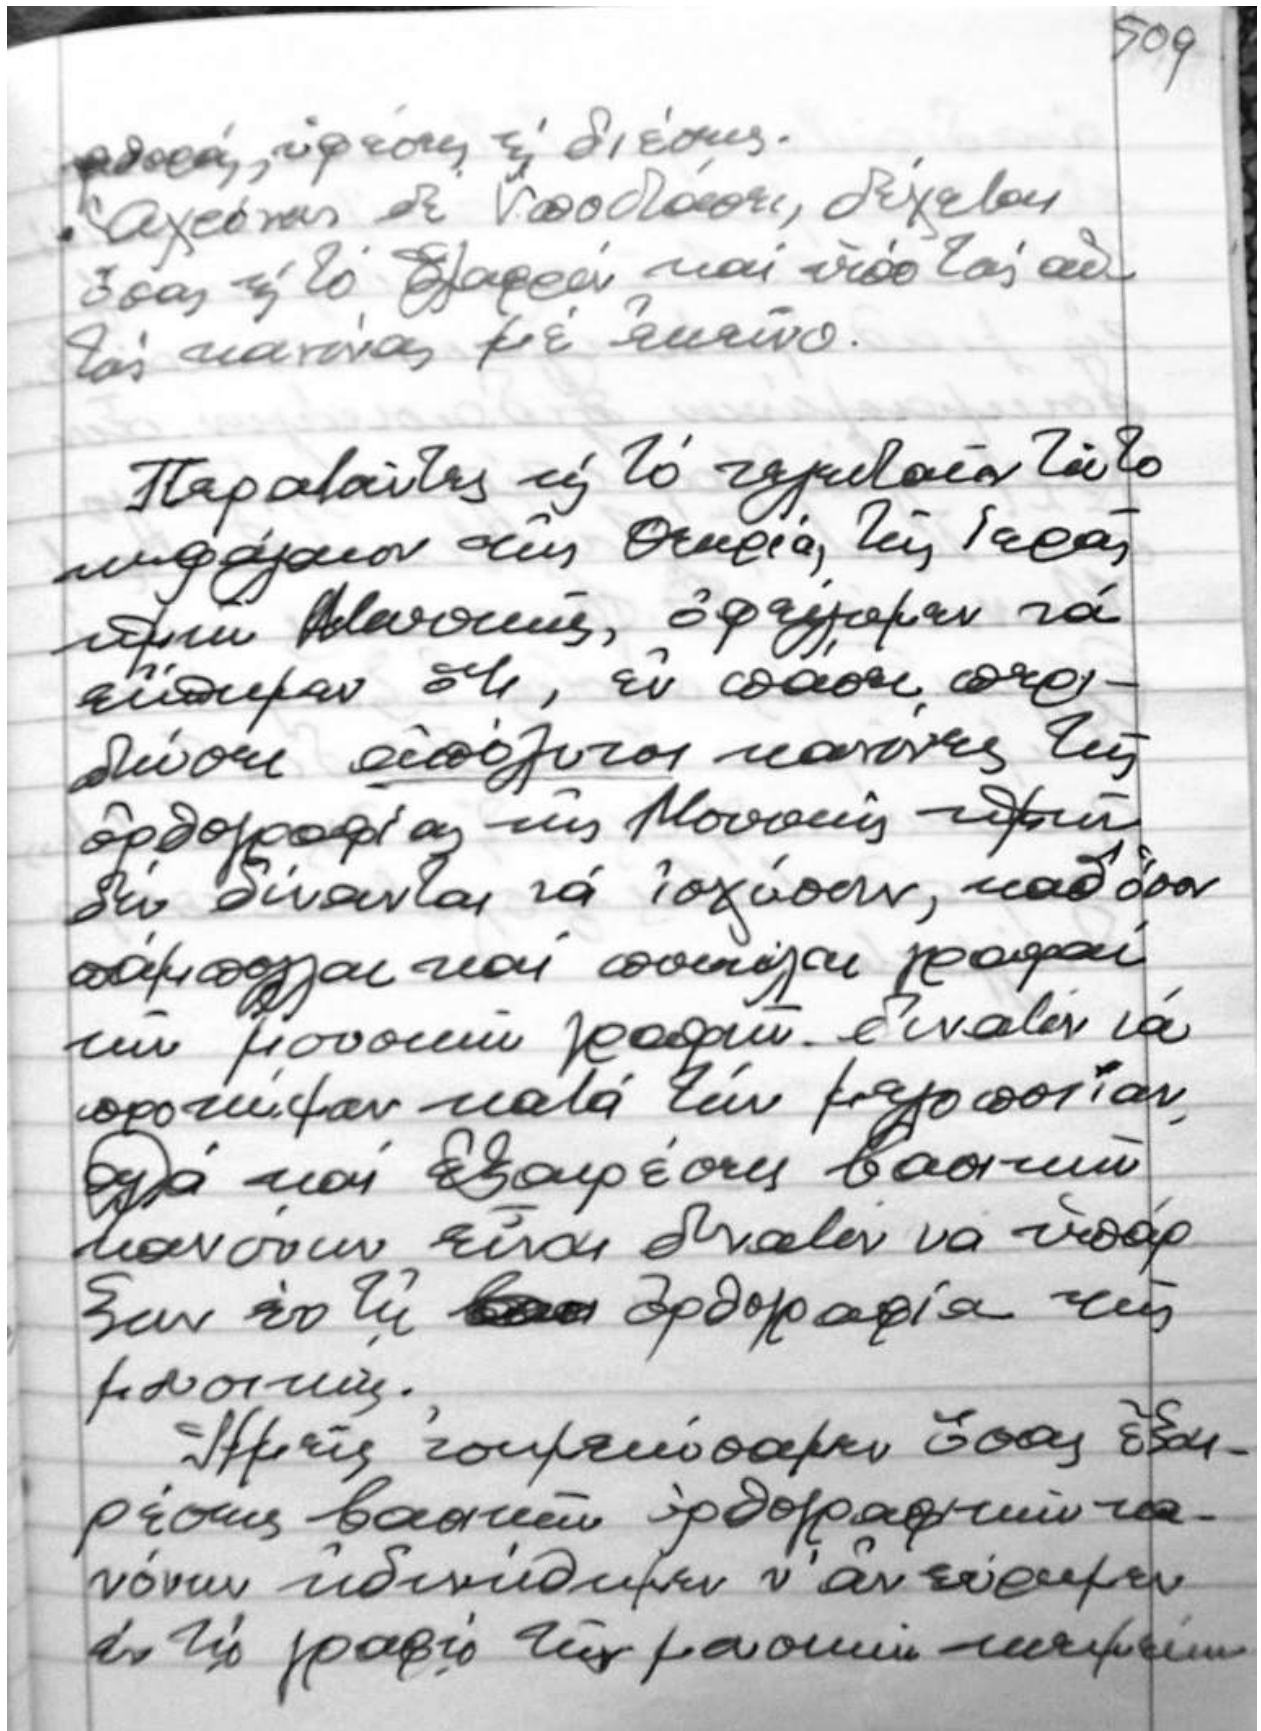 509
φθοράς, ὑφέσεις ἢ διέσεις.
δὲ Ὑποδιαίρεσι, δέχεται
ὅσας καὶ τὸ Ἐλαφρόν καὶ ὑπὸ τοὺς αὐ
τοὺς κανόνας μὲ ἐκεῖνο.
Περατοῦντες τὸ τελευταῖον τοῦτο
κεφάλαιον τῆς Θεωρίας τῆς Ἱερᾶς
ἡμῶν Μουσικῆς, ὀφείλομεν νά
εἴπωμεν ὅτι, ἐν πάσῃ περι-
πτώσει ἀπόλυτοι κανόνες τῆς
ὀρθογραφίας τῆς Μουσικῆς ἡμῶν
δέν δύνανται νά ἰσχύσουν, καθ' ὅσον
πάμπολλαι καί ποικίλαι γραφαί
τῶν μουσικῶν γραμμῶν δυνατόν νά
προκύψουν κατά τήν μελοποιΐαν,
ἀλλά καί ἐξαιρέσεις βασικῶν
κανόνων εἶναι δυνατόν να ὑπάρ
ξουν ἐν τῇ ὀρθογραφία τῆς
μουσικῆς.
Ἡμεῖς ἐσημειώσαμεν ὅσας ἐξαι-
ρέσεις βασικῶν ὀρθογραφικῶν κα-
νόνων ἠδυνήθημεν ν' ἀνεύρωμεν
ἐν τῇ γραφῇ τῶν μουσικῶν κειμένων